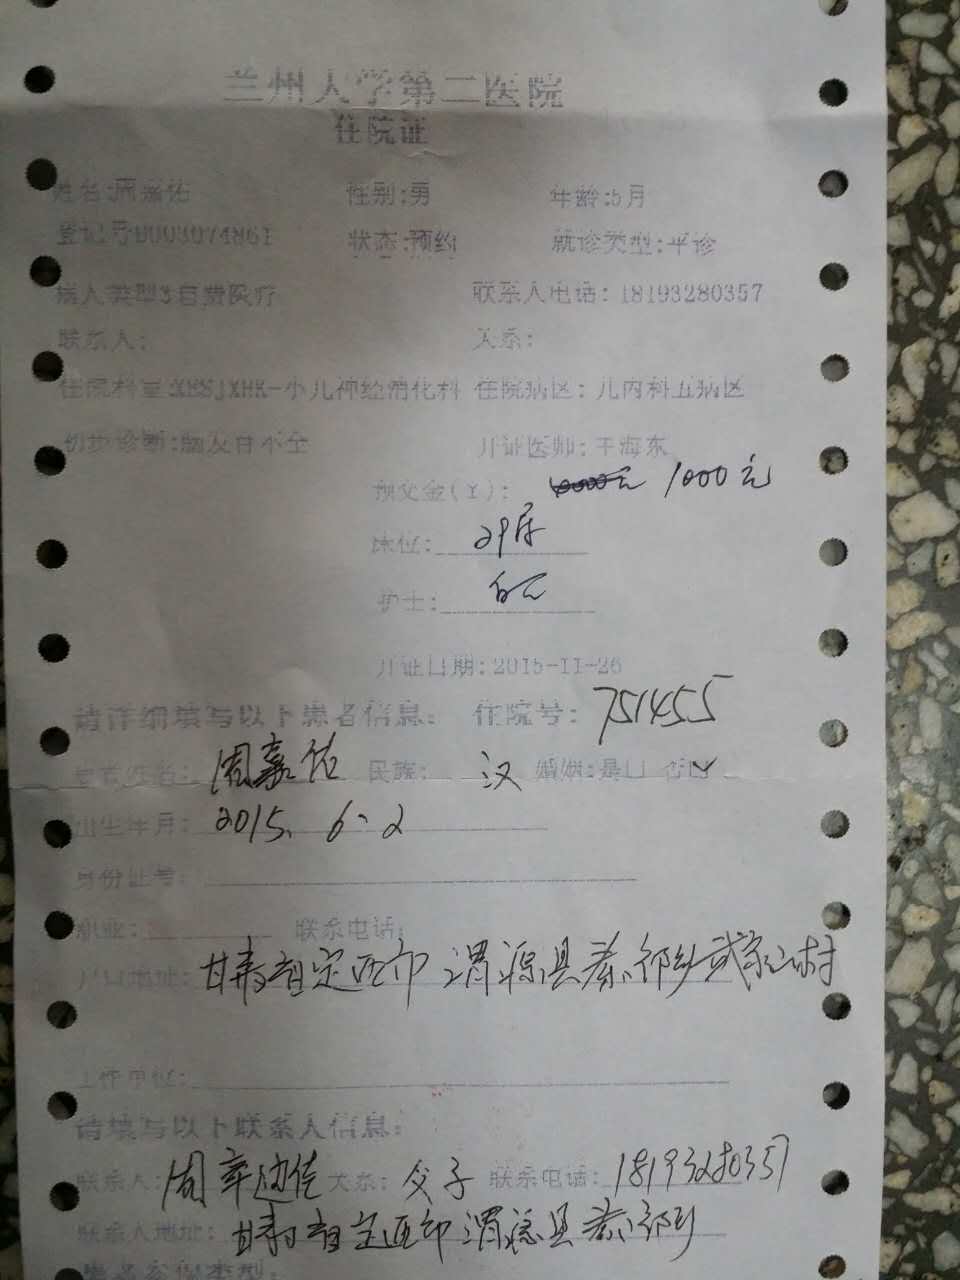 兰州大学第二医院
住院证
姓名:周嘉佑 性别:男 年龄:5月
登记号0003074861 状态:预约 就诊类型:平诊
病人类型3自费医疗 联系人电话: 18193280357
联系人: 关系:
住院科室:XESJXHK-小儿神经消化科 住院病区: 儿内科五病区
初步诊断:脑发育不全 开证医师:王海东
预交金(¥): 1000元
床位: 29床
护士:
开证日期:2015-11-26
请详细填写以下患者信息: 住院号: 751455
患者姓名: 周嘉佑 民族: 汉 婚姻:是□ 否☑
出生年月: 2015. 6. 2
身份证号:
职业: 联系电话:
户口地址: 甘肃省定西市渭源县秦祁乡武家山村
工作单位:
请填写以下联系人信息:
联系人: 周 关系: 父子 联系电话: 18193280357
联系人地址: 甘肃省定西市渭源县秦祁乡
患者医保类型: